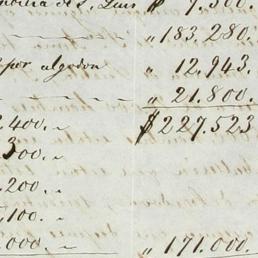 de S. Luis $ 7.500.
" 183.280.
por algodon " 12.943.
" 21.800.
2.400. " $ 227.523
300. "
.200. "
.100. "
.000. " " 171.000.